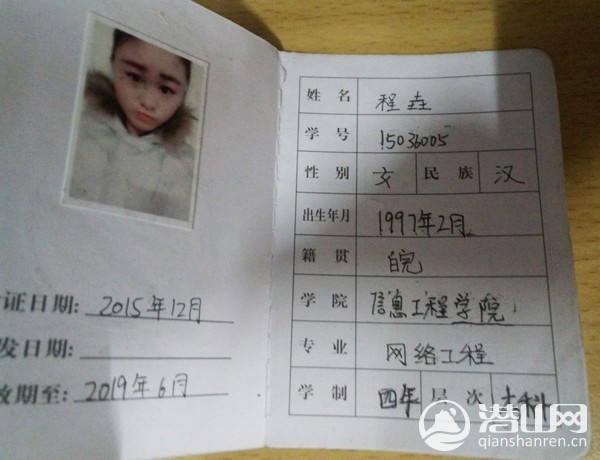 证日期: 2015年12月
发日期:
效期至: 2019年6月
姓 名 程垚
学 号 15036005
性 别 女 民 族 汉
出生年月 1997年2月
籍 贯 皖
学 院 信息工程学院
专 业 网络工程
学 制 四年 层 次 本科
潜山网
qianshanren.cn